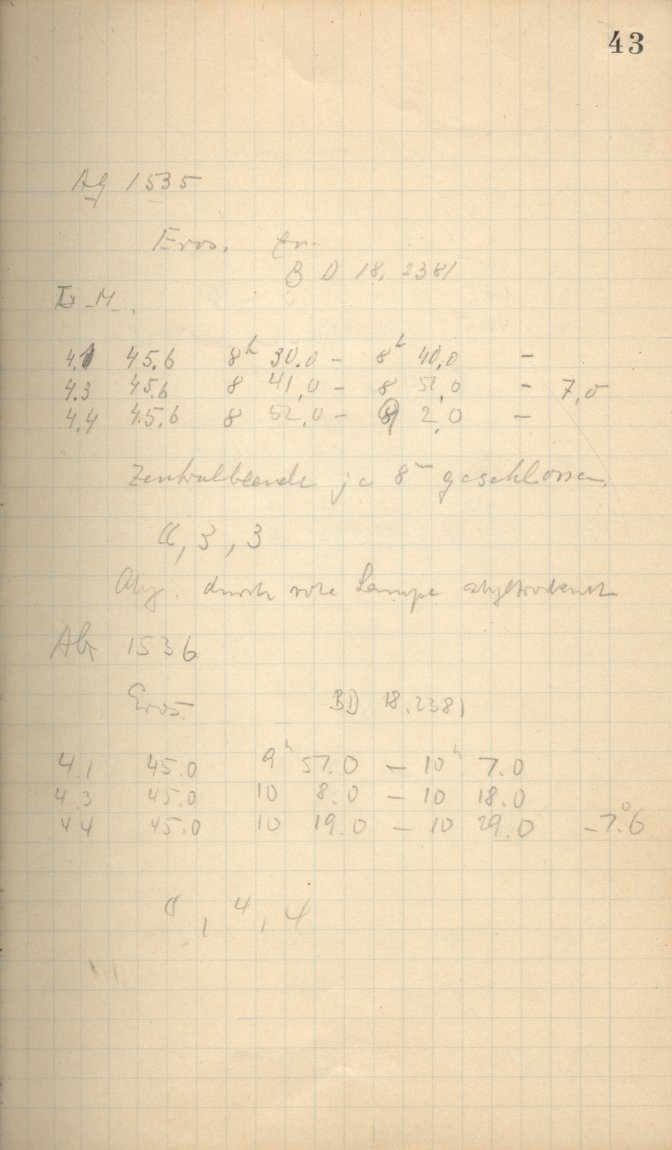 43
Ag 1535
Eros.
B D 18, 2381
4.1 45.6 8h 30.0 - 8h 40.0 -
4.3 45.6 8 41.0 - 8 51.0 - 7,5
4.4 45.6 8 52.0 - 9 2.0 -
Zentralblende je 8m geschlossen
3, 3
durch rote Lampe
1536
Eros BD 18.2381
4.1 45.0 9h 57.0 - 10h 7.0
4.3 45.0 10 8.0 - 10 18.0
4.4 45.0 10 19.0 - 10 29.0 -7.°6
4, 4